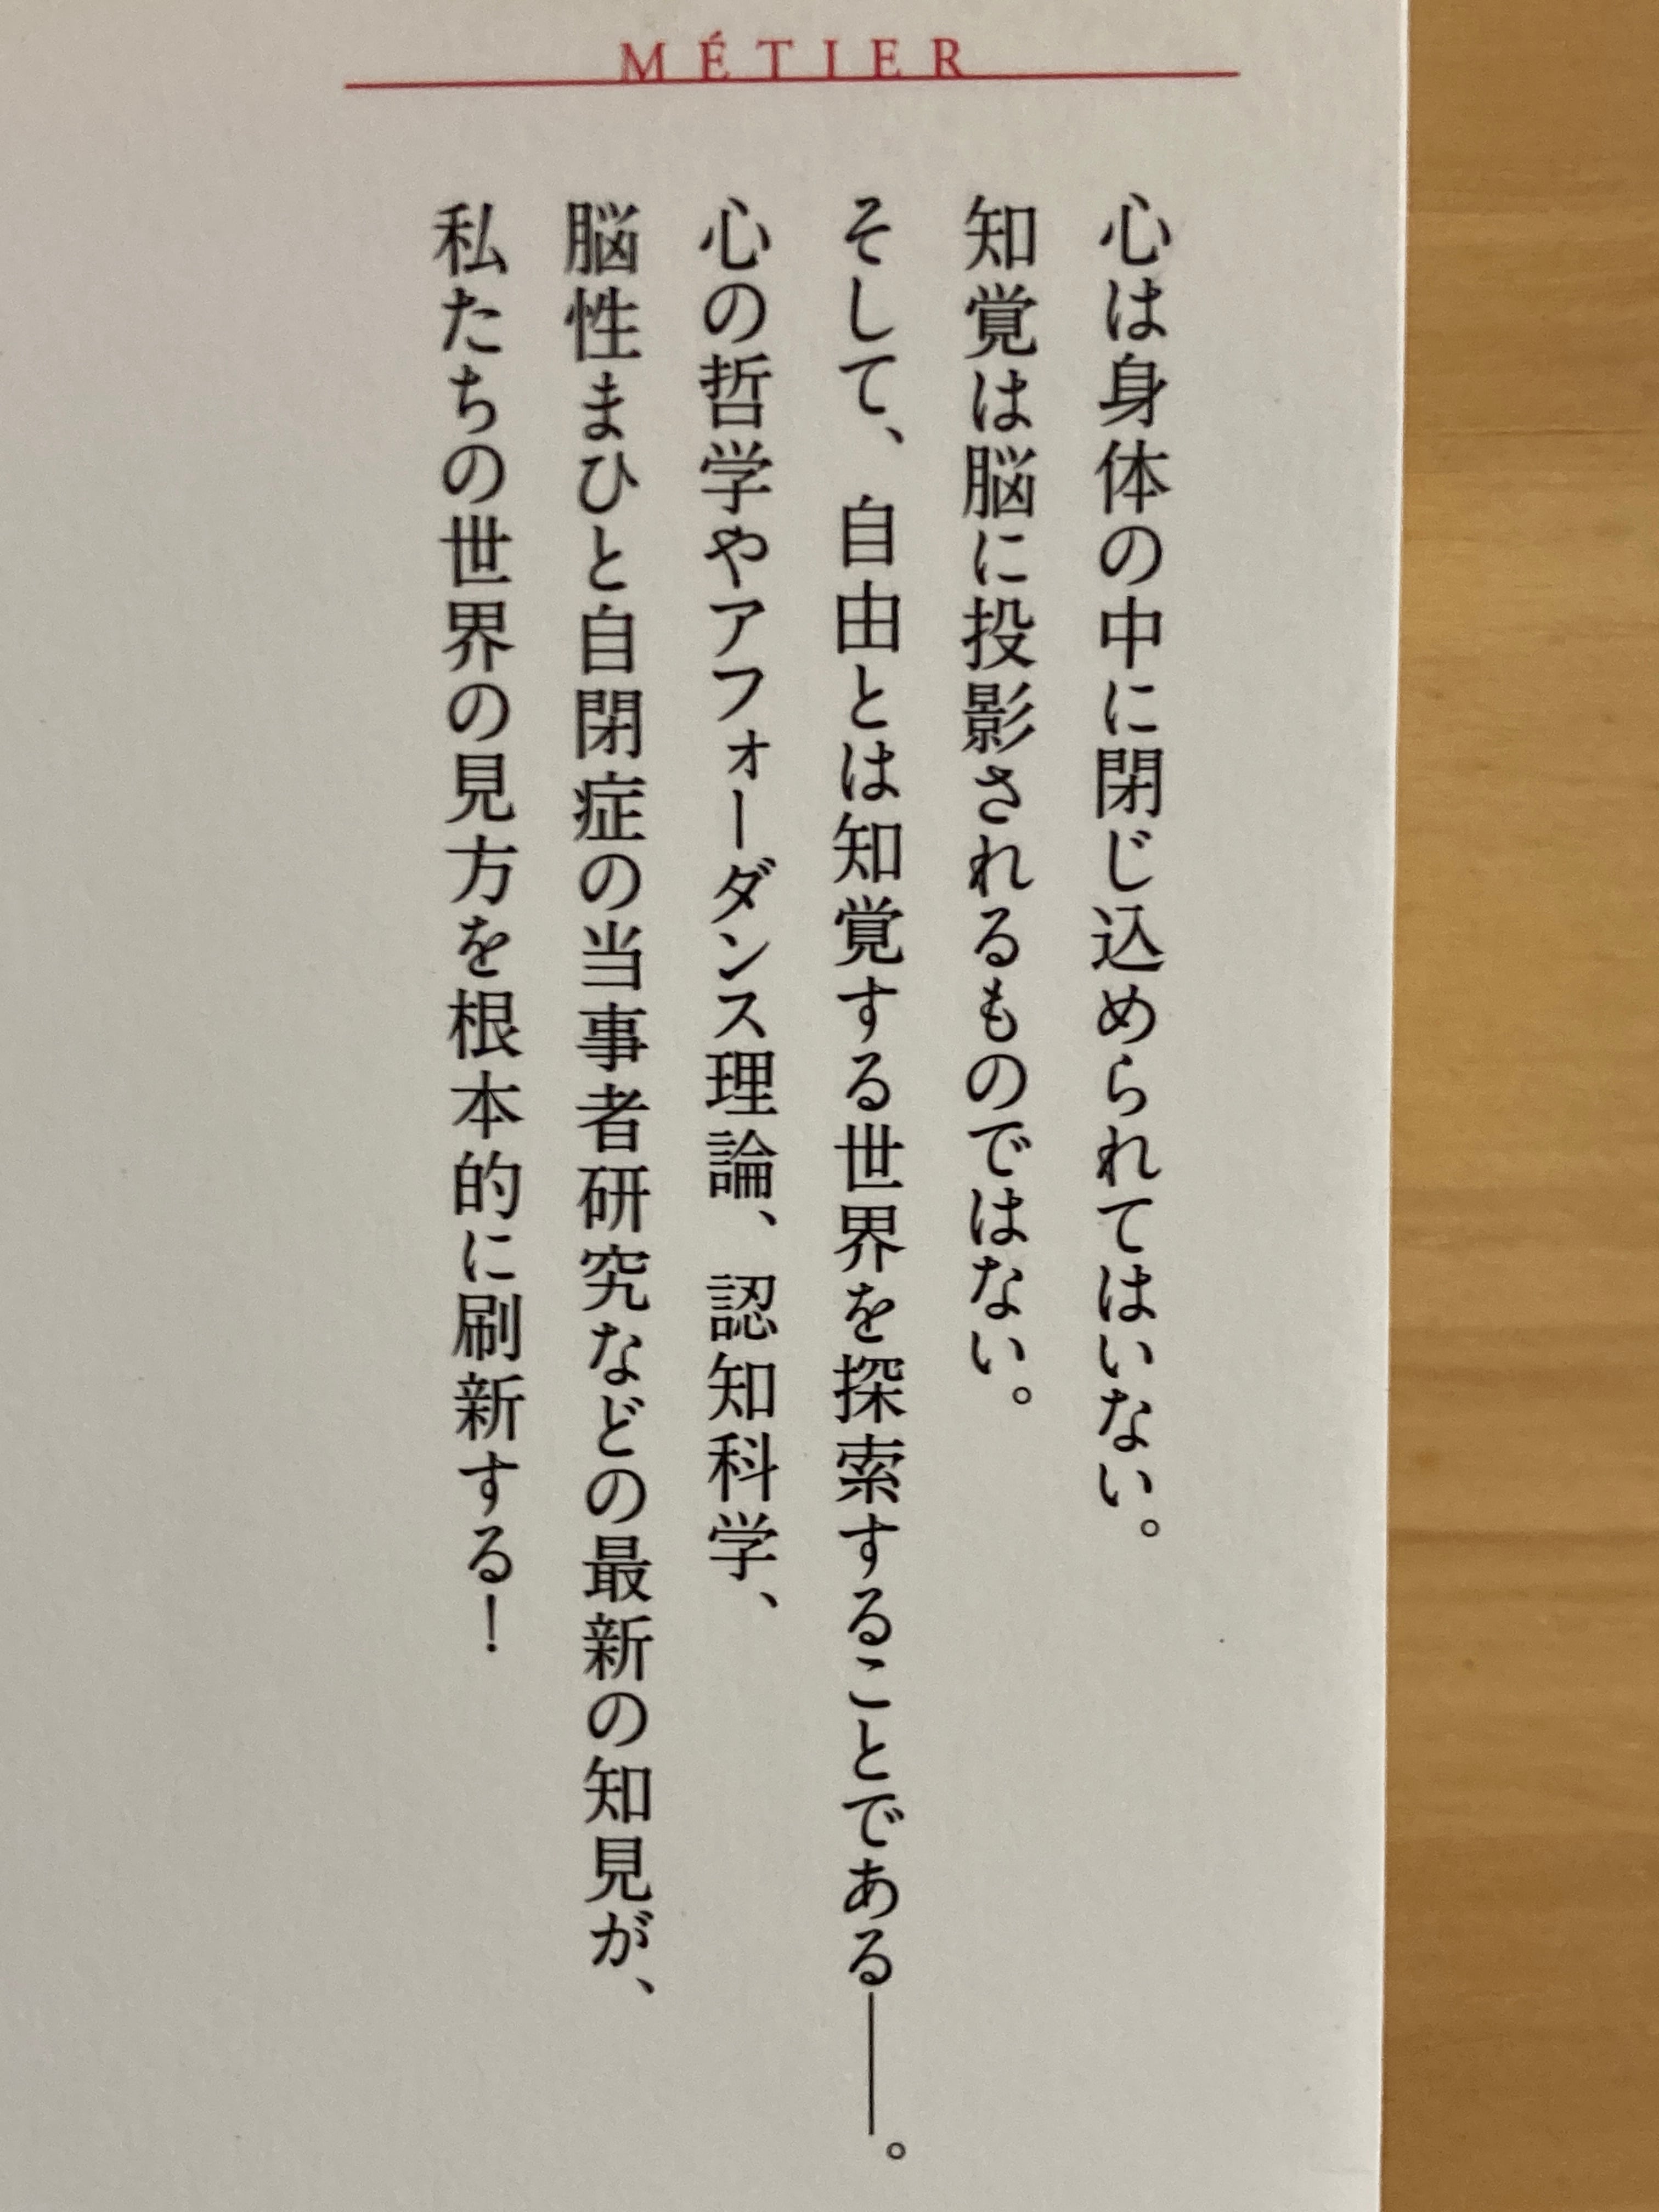 MÉTIER
心は身体の中に閉じ込められてはいない。
知覚は脳に投影されるものではない。
そして、自由とは知覚する世界を探索することである――。
心の哲学やアフォーダンス理論、認知科学、
脳性まひと自閉症の当事者研究などの最新の知見が、
私たちの世界の見方を根本的に刷新する！